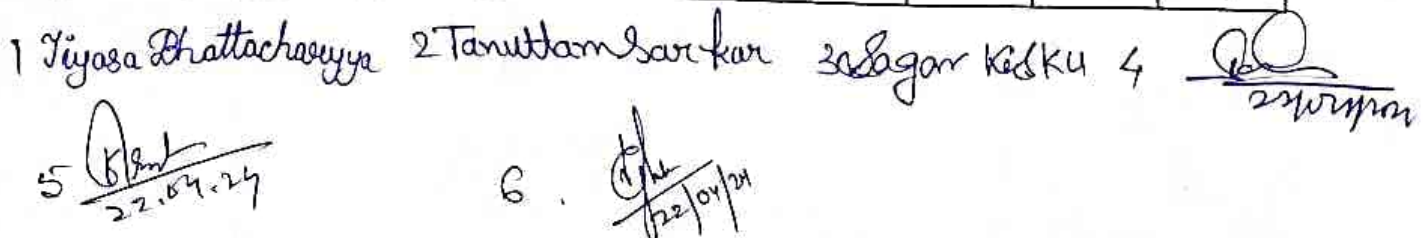 1 Tiyasa Bhattacharyya 2 Tanuttam Sarkar 3 Sagar Kisku 4
5 22.04.24 6. 22/04/24